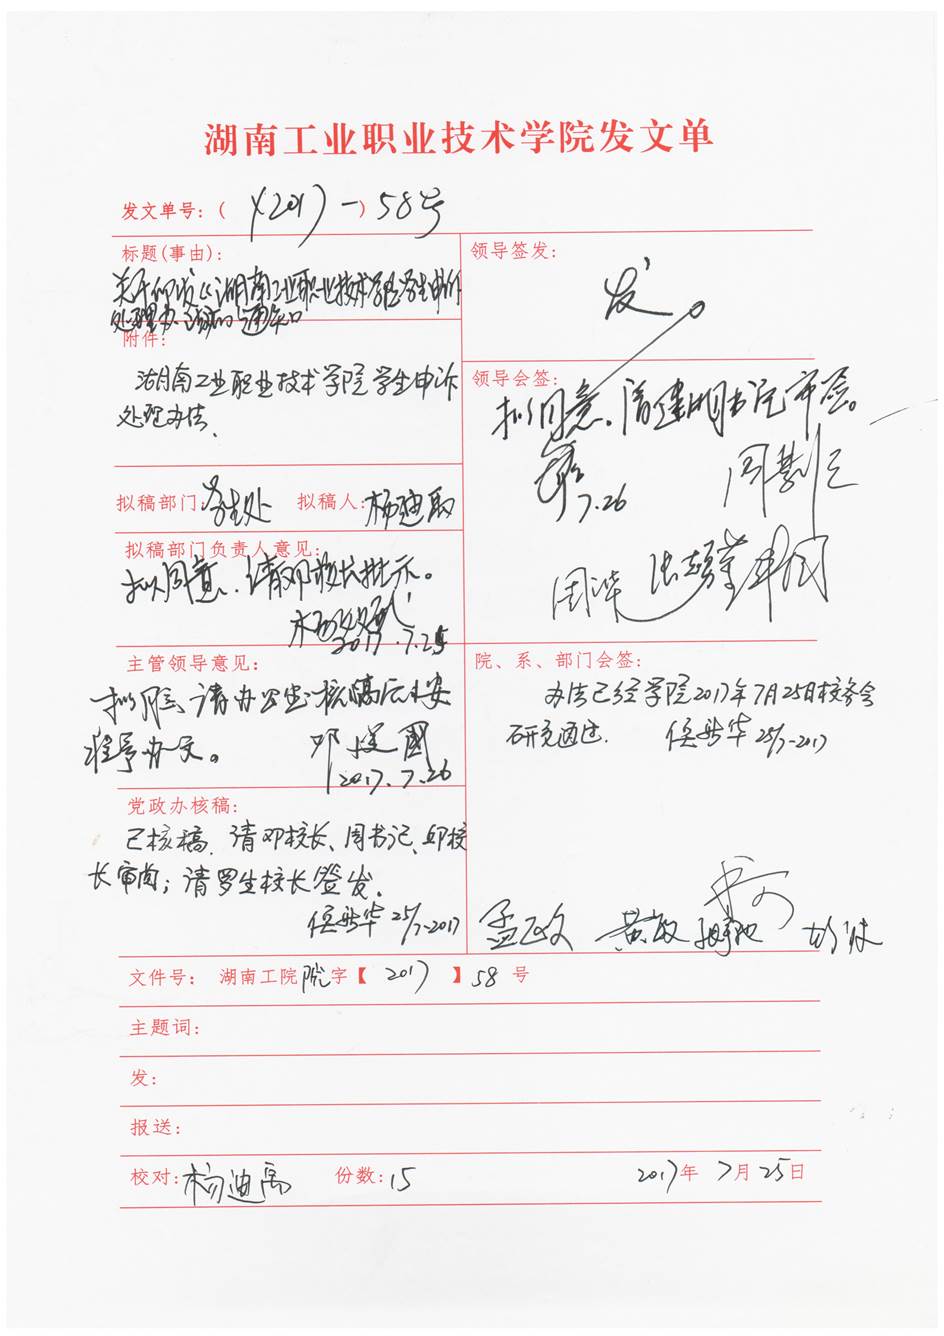 湖南工业职业技术学院发文单
发文单号：( (2017) 一) 58号
标题(事由)：
关于印发《湖南工业职业技术学院学生申诉
处理办法》的通知
附件：
湖南工业职业技术学院学生申诉
处理办法.
拟稿部门：学生处 拟稿人：杨迪
拟稿部门负责人意见：
拟同意，请邓校长批示。
2017.7.25
主管领导意见：
拟同意，请办公室核稿后按
程序办文。
邓建国
2017.7.26
党政办核稿：
已核稿，请邓校长、周书记、邱校
长审阅；请罗生校长签发。
侯华 25/7-2017
领导签发：
发
领导会签：
拟同意，请建明书记审签。
7.26
院、系、部门会签：
办法已经学院2017年7月25日校务会
研究通过. 侯华 25/7-2017
孟正文 黄敏
文件号： 湖南工院院字【 2017 】58 号
主题词：
发：
报送：
校对：杨迪 份数：15 2017年 7月25日